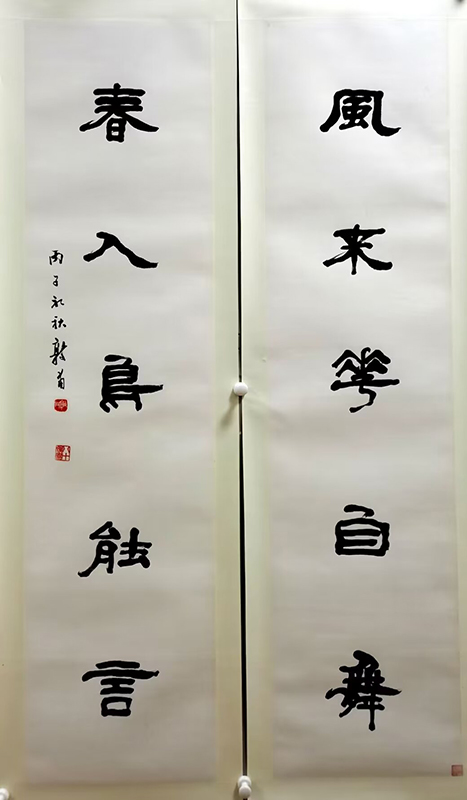 風來華自舞
春入鳥能言
丙子初秋敦甫